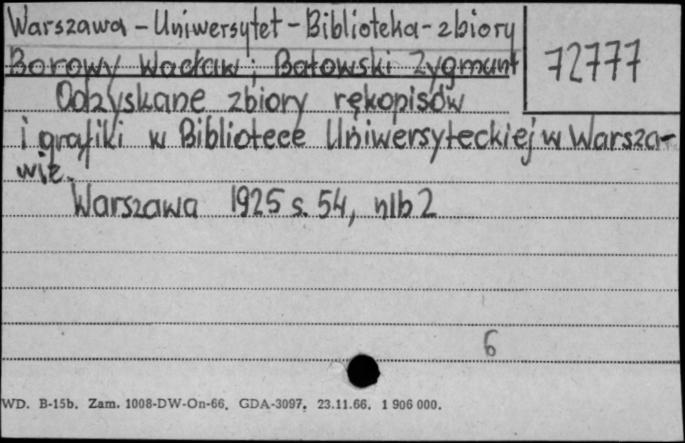 Warszawa - Uniwersytet - Biblioteka - zbiory
72777
Borowy Wacław; Batowski Zygmunt
Odzyskane zbiory rękopisów
i grafiki w Bibliotece Uniwersyteckiej w Warsza-
wie.
Warszawa 1925 s. 54, nlb 2
6
WD. B-15b. Zam. 1008-DW-On-66. GDA-3097. 23.11.66. 1 906 000.